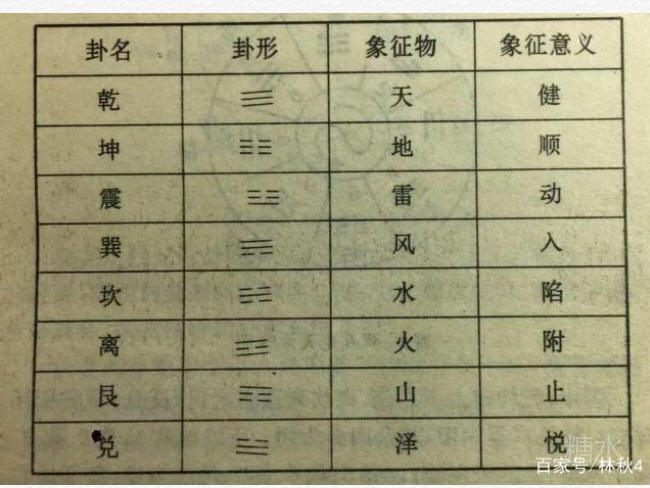 卦名 卦形 象征物 象征意义
乾 ☰ 天 健
坤 ☷ 地 顺
震 ☳ 雷 动
巽 ☴ 风 入
坎 ☵ 水 陷
离 ☲ 火 附
艮 ☶ 山 止
兑 ☱ 泽 悦
糖水
百家号/林秋4